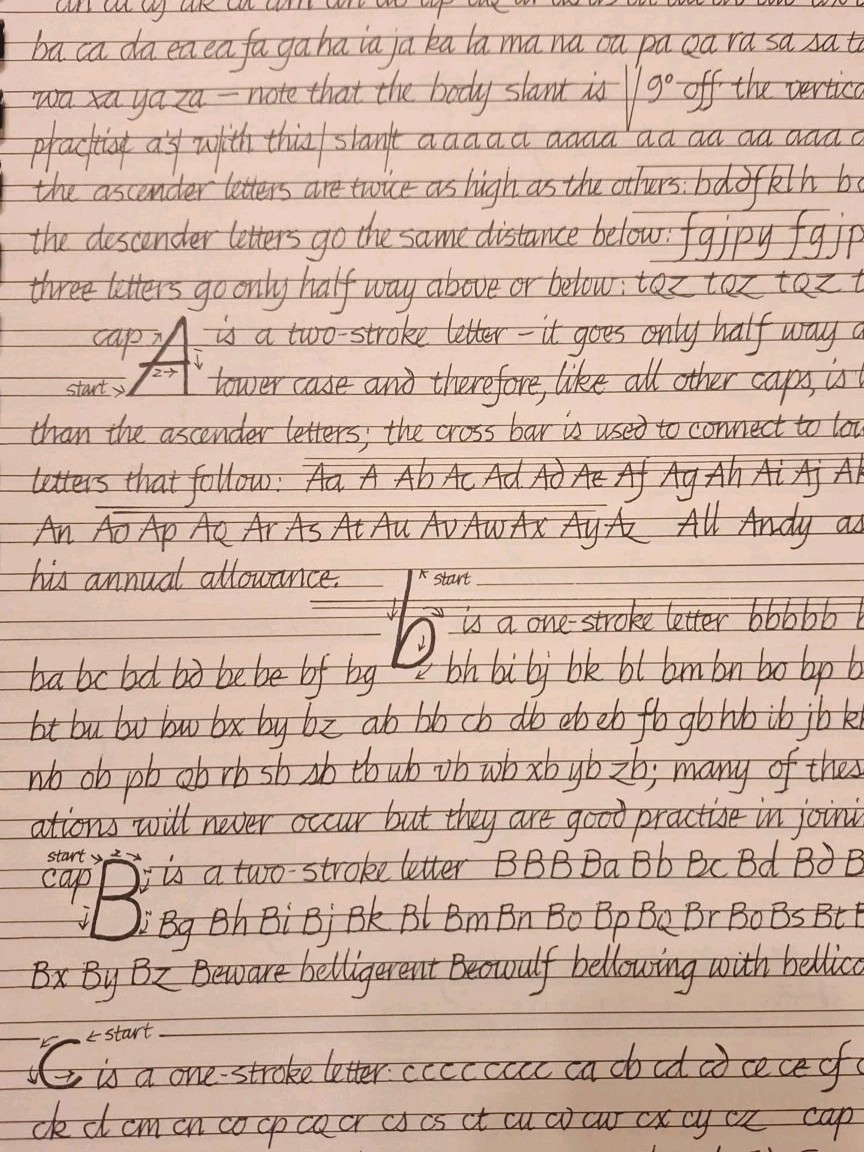 ba ca da ea ea fa ga ha ia ja ka la ma na oa pa qa ra sa sa
wa xa ya za – note that the body slant is 9° off the
practise a's with this slant a a a a a aaaa aa aa aa aaa
the ascender letters are twice as high as the others: bd∂fklh
the descender letters go the same distance below: fgjpy fgjp
three letters go only half way above or below: tqz tqz tqz t
cap A is a two-stroke letter – it goes only half way
start 2 lower case and therefore, like all other caps, is
than the ascender letters; the cross bar is used to connect to
letters that follow: Aa A Ab Ac Ad A∂ Ae Af Ag Ah Ai Aj
An Ao Ap Aq Ar As At Au Av Aw Ax Ay Az All Andy
his annual allowance.
start
b is a one-stroke letter bbbbb
ba bc bd b∂ be be bf bg bh bi bj bk bl bm bn bo bp
bt bu bv bw bx by bz ab bb cb db eb eb fb gb hb ib jb
nb ob pb qb rb sb sb tb ub vb wb xb yb zb; many of
ations will never occur but they are good practise in
start 2
cap B is a two-stroke letter B B B Ba Bb Bc Bd B∂
Bg Bh Bi Bj Bk Bl Bm Bn Bo Bp Bq Br Bo Bs Bt
Bx By Bz Beware belligerent Beowulf bellowing with
start
C is a one-stroke letter: cccccccc ca cb cd c∂ ce ce cf
ck cl cm cn co cp cq cr cs cs ct cu cv cw cx cy cz cap